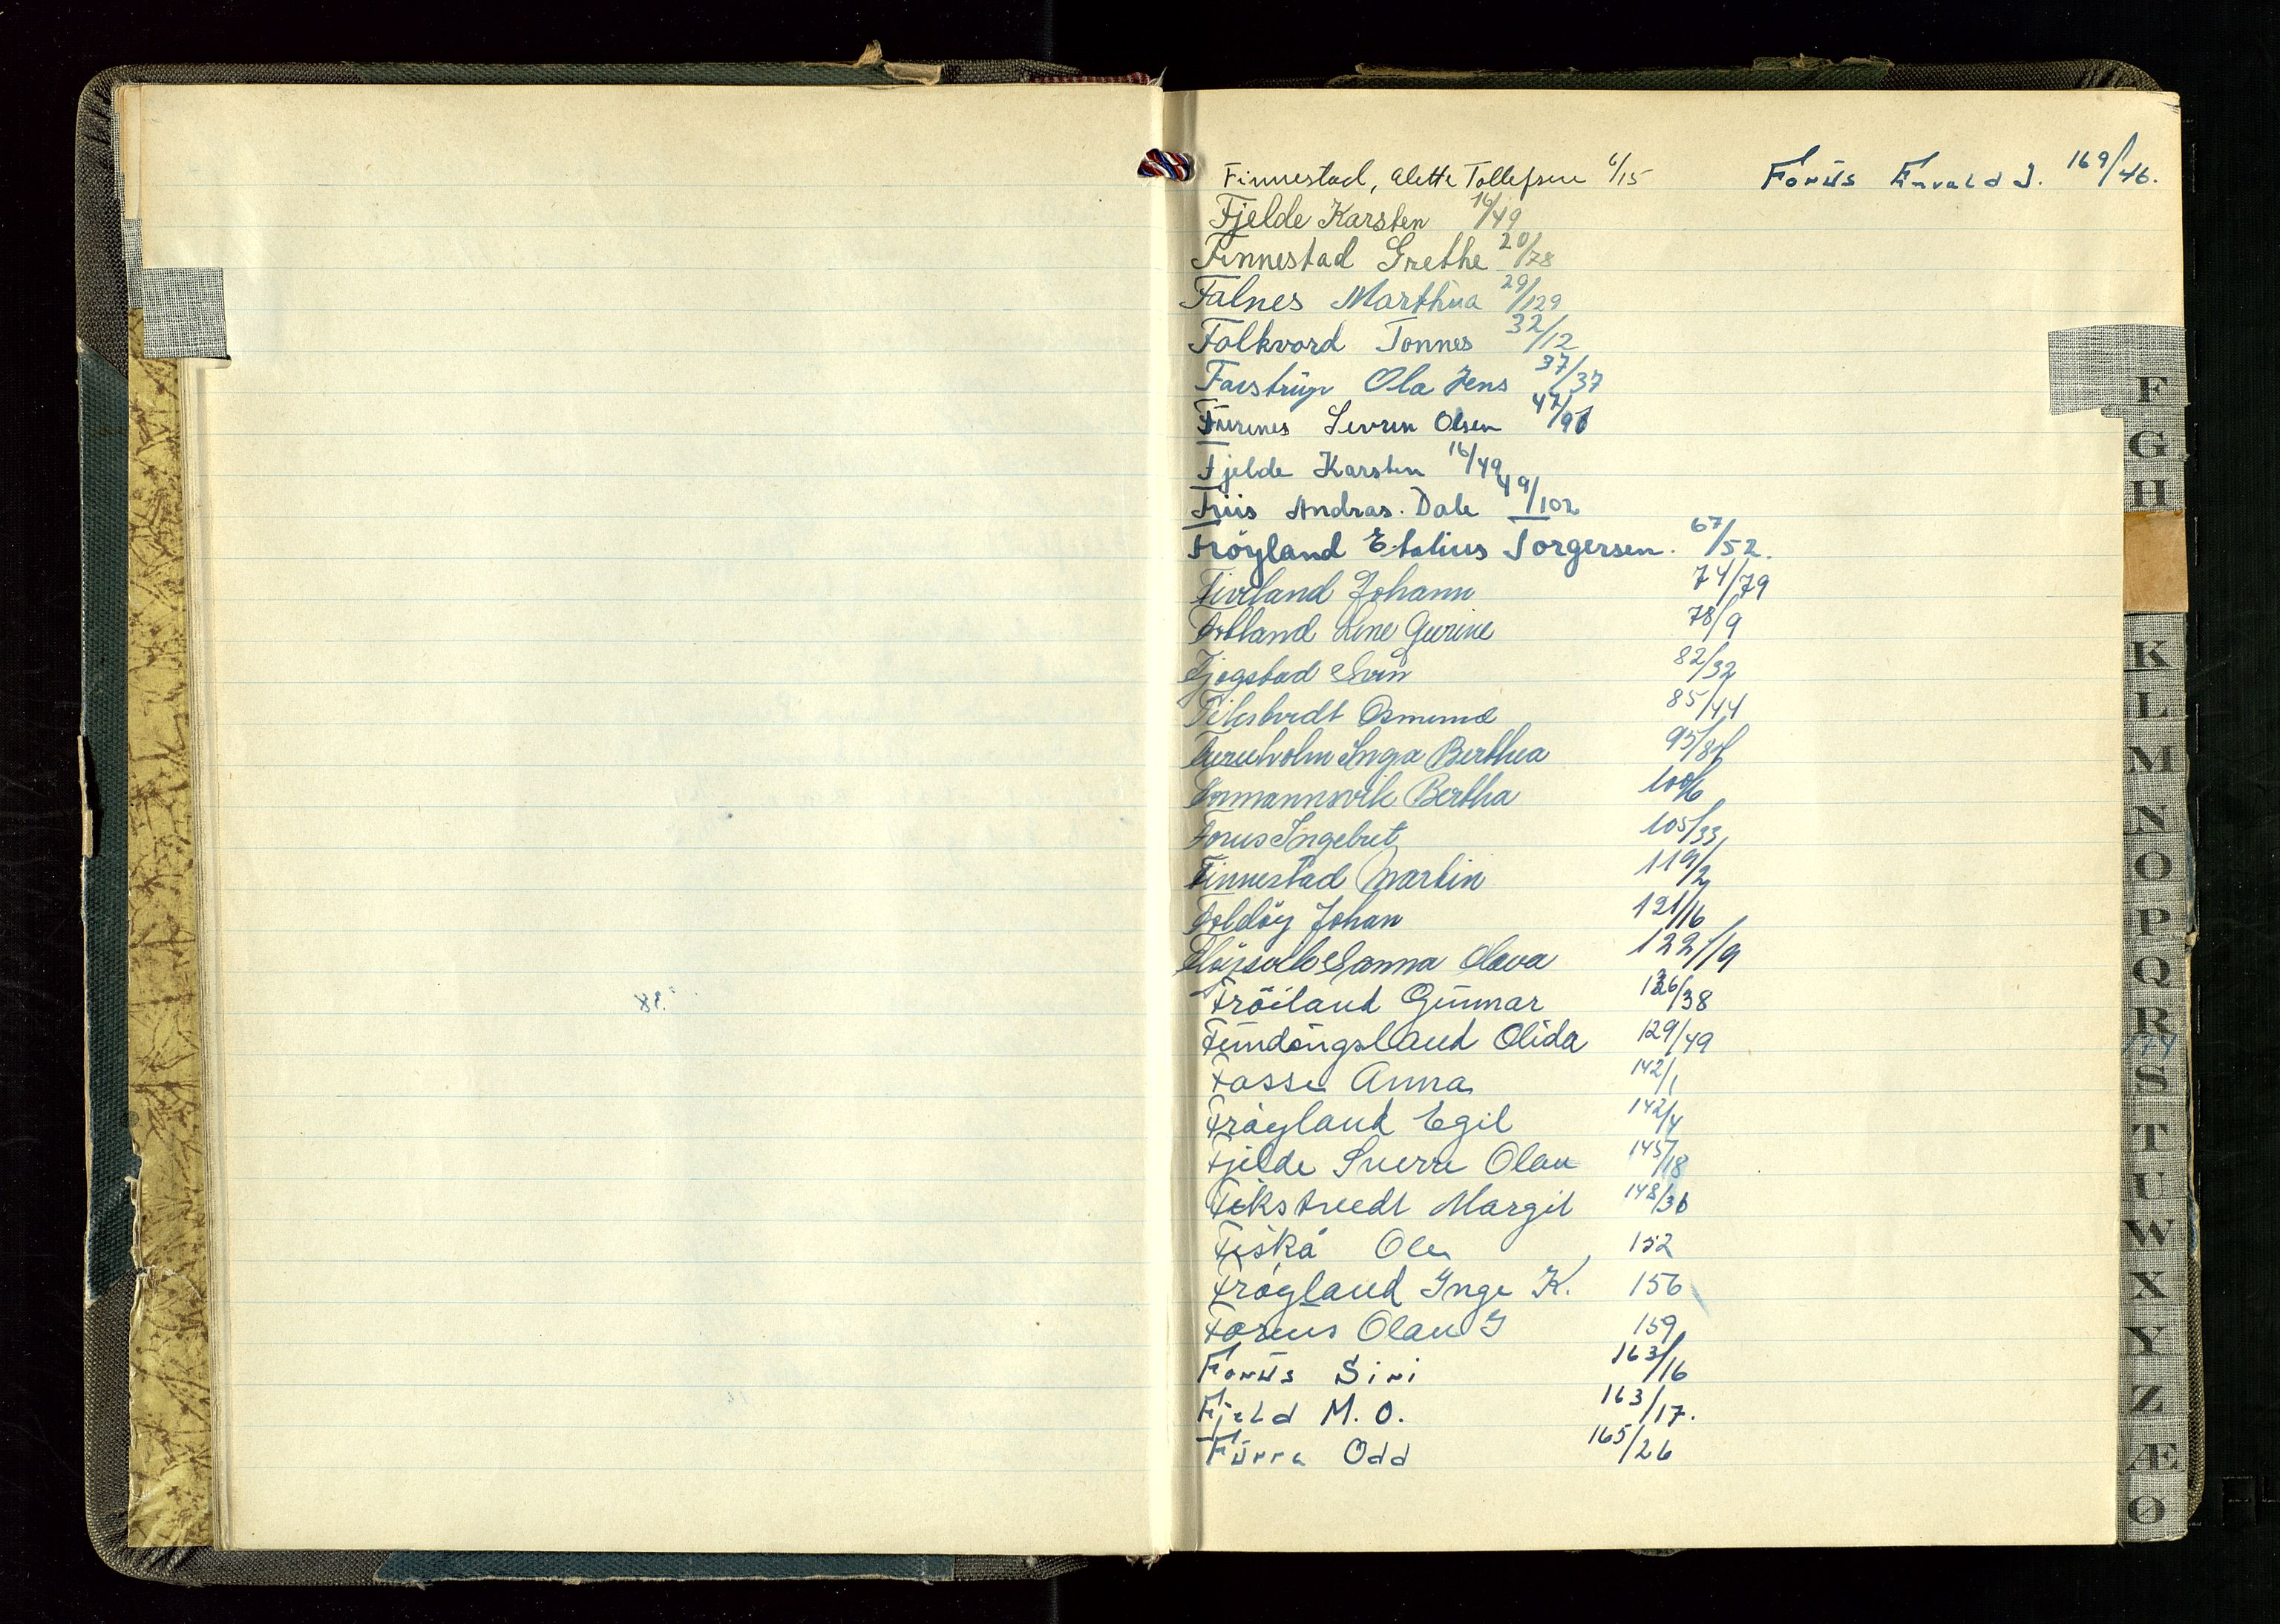 Finnestad, Alette Tollefsen 6/15
Forüs Envald J. 169/46.
Fjelde Karsten 16/49
Finnestad Grethe 20/78
Falnes Marthüa 29/129
Folkvord Tonnes 32/12
Faustrüp Ola Jens 37/37
Fürenes Sevren Olsen 47/96
Fjelde Karsten 16/49
Friis Andras. Dale 49/102
Fröyland Etalius Torgersen. 67/52.
Fivland Johann 74/79
Line Gurine 78/9
Fjogstad Svin 82/32
Fikstvedt Osmund 85/44
Fureholm Inga Berthea 95/84
Formannsvik Bertha 100/6
Forus Ingebret 105/33
Finnestad Martin 119/2
Foldöy Johan 121/16
Flöysvik Sanna Olava 122/19
Fröiland Günnar 126/38
Fündingsland Olida 129/49
Fosse Anna 142/1
Fröyland Egil 142/4
Fjelde Sverre Olau 145/18
Fikstveedt Margit 148/36
Fiskå Ole 152
Fröyland Inge K. 156
Forus Olau G 159
Forüs Siri 163/16
Fjeld M. O. 163/17.
Fürre Odd 165/26
F
G
H
K
L
M
N
O
P
Q
R
S
T
U
W
X
Y
Z
Æ
Ø